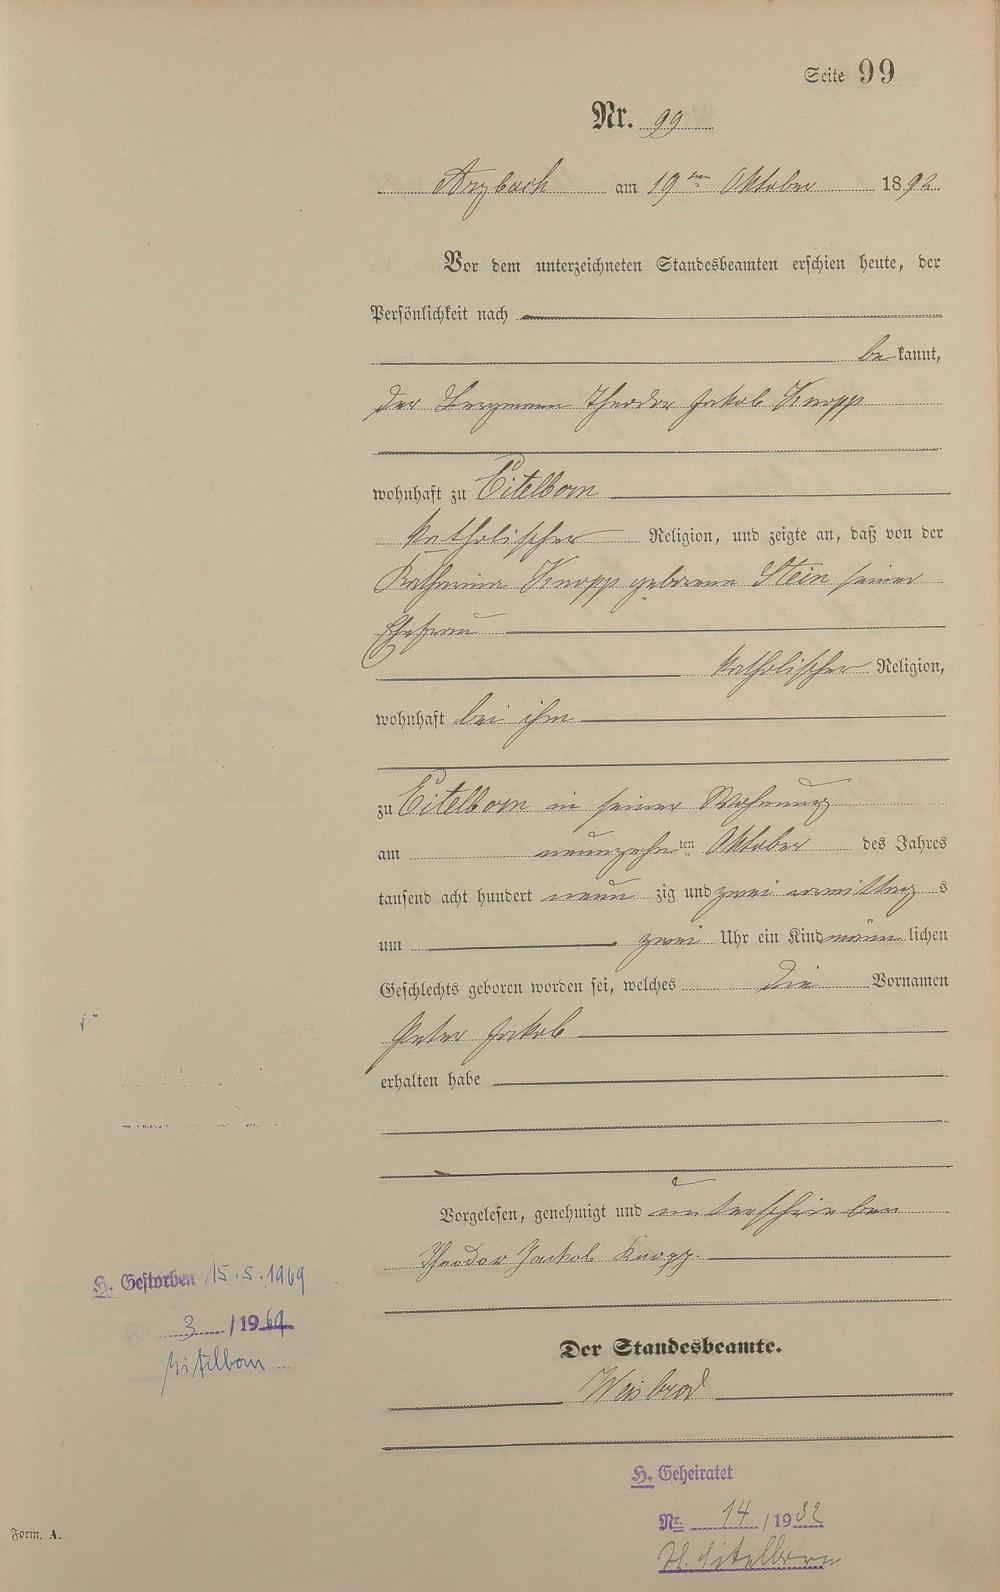 Seite 99
Nr. 99
Arzbach am 19ten Oktober 1892
Vor dem unterzeichneten Standesbeamten erschien heute, der
Persönlichkeit nach
bekannt,
der Bergmann Theodor Jakob Knopp
wohnhaft zu Eitelborn
katholischer Religion, und zeigte an, daß von der
Katharina Knopp geborene Stein seiner
Ehefrau
katholischer Religion,
wohnhaft bei ihm
zu Eitelborn in seiner Wohnung
am neunzehnten Oktober des Jahres
tausend acht hundert neunzig und zwei vormittags
um zwei Uhr ein Kind männlichen
Geschlechts geboren worden sei, welches die Vornamen
Peter Jakob
erhalten habe
Vorgelesen, genehmigt und unterschrieben
Theodor Jackob Knopp.
Der Standesbeamte.
Weisbrod
H. Gestorben 15.5.1969
3 / 1969
Eitelborn
H. Geheiratet
Nr. 14 / 1932
St. Eitelborn
Form. A.